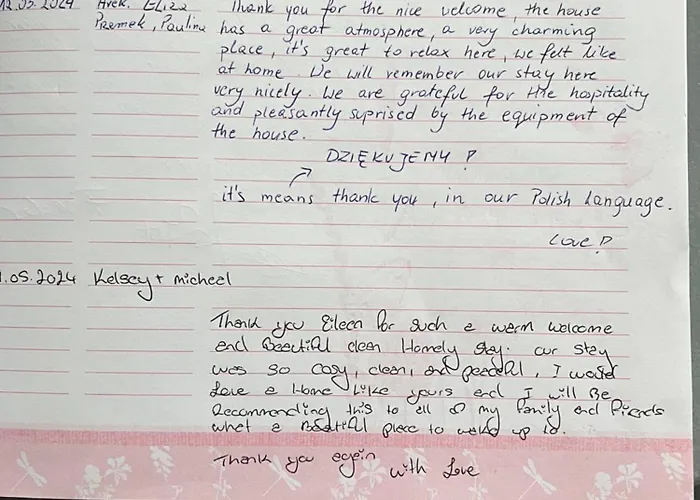 12.05.2024 Arek, Eliza Thank you for the nice velcome, the house
Przemek, Paulina has a great atmosphere, a very charming
place, it's great to relax here, we felt like
at home. We will remember our stay here
very nicely. We are grateful for the hospitality
and pleasantly suprised by the equipment of
the house.
DZIĘKUJEMY!
it's means thank you, in our Polish language.
Love!
.05.2024 Kelsey + micheal
Thank you Eileen for such a warm welcome
and Beautiful clean Homely stay. our stay
was so cosy, clean, and peaceful, I would
Love a Home Like yours and I will Be
Recommending this to all of my family and friends
what a Beautiful place to wake up to.
Thank you again
with Love